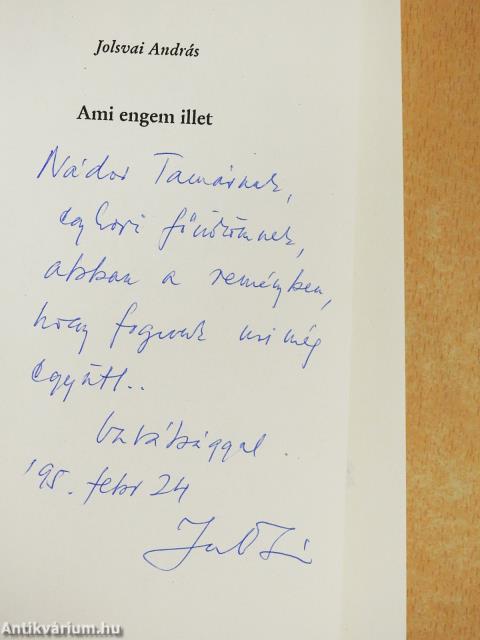 Jolsvai András
Ami engem illet
Nádor Tamásnak,
egykori főnökömnek,
abban a reményben,
hogy fogunk mi még
együtt..
barátsággal
'95. febr 24
Antikvárium.hu